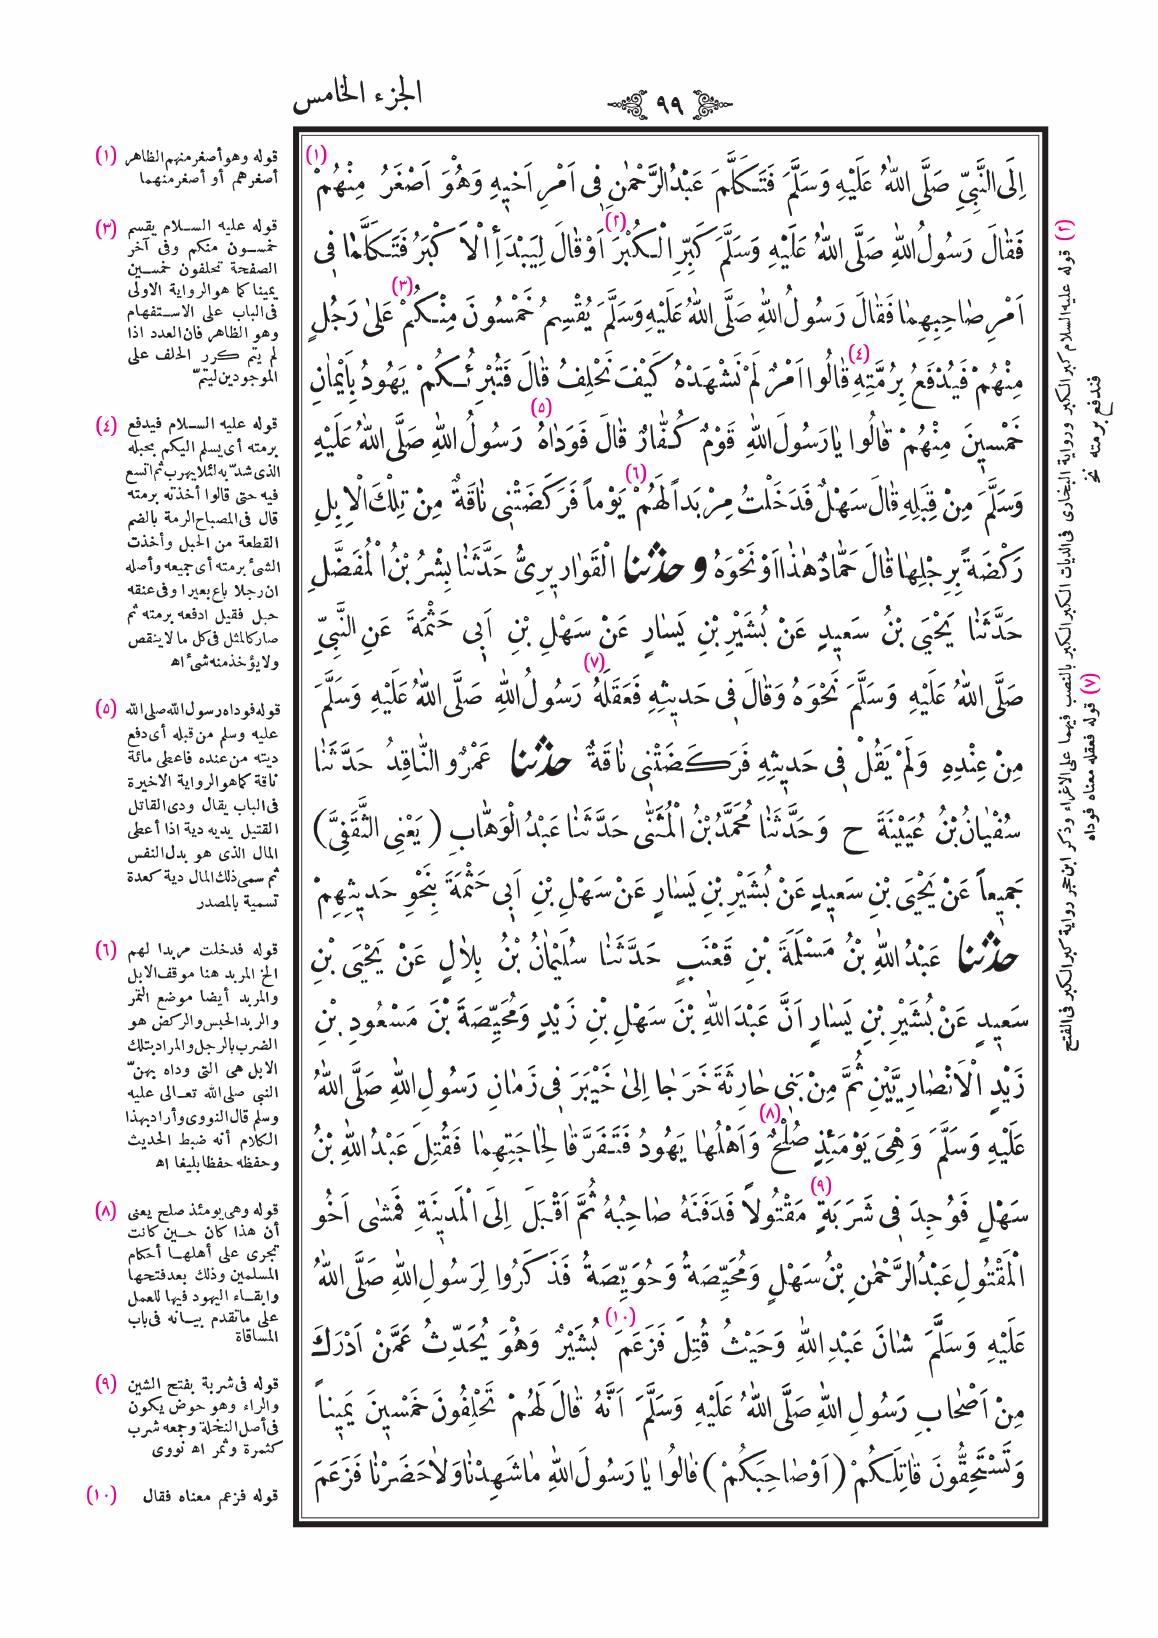 الجزء الخامس
٩٩
(١)
اِلَى النَّبِيِّ صَلَّى اللّٰهُ عَلَيْهِ وَسَلَّمَ فَتَكَلَّمَ عَبْدُ الرَّحْمٰنِ فِى اَمْرِ اَخِيهِ وَهُوَ اَصْغَرُ مِنْهُمْ
(٢)
فَقَالَ رَسُولُ اللّٰهِ صَلَّى اللّٰهُ عَلَيْهِ وَسَلَّمَ كَبِّرِ الْكُبْرَ اَوْ قَالَ لِيَبْدَأِ الْاَكْبَرُ فَتَكَلَّمَا فِى
(٣)
اَمْرِ صَاحِبِهِمَا فَقَالَ رَسُولُ اللّٰهِ صَلَّى اللّٰهُ عَلَيْهِ وَسَلَّمَ يُقْسِمُ خَمْسُونَ مِنْكُمْ عَلىٰ رَجُلٍ
(٤)
مِنْهُمْ فَيُدْفَعُ بِرُمَّتِهِ قَالُوا اَمْرٌ لَمْ نَشْهَدْهُ كَيْفَ نَحْلِفُ قَالَ فَتُبْرِئُكُمْ يَهُودُ بِاَيْمَانِ
(٥)
خَمْسِينَ مِنْهُمْ قَالُوا يَارَسُولَ اللّٰهِ قَوْمٌ كُفَّارٌ قَالَ فَوَدَاهُ رَسُولُ اللّٰهِ صَلَّى اللّٰهُ عَلَيْهِ
(٦)
وَسَلَّمَ مِنْ قِبَلِهِ قَالَ سَهْلٌ فَدَخَلْتُ مِرْبَداً لَهُمْ يَوْماً فَرَكَضَتْنِى نَاقَةٌ مِنْ تِلْكَ الْاِبِلِ
رَكْضَةً بِرِجْلِهَا قَالَ حَمَّادٌ هٰذَا اَوْ نَحْوَهُ و حدثنا الْقَوَارِيرِىُّ حَدَّثَنَا بِشْرُ بْنُ الْمُفَضَّلِ
حَدَّثَنَا يَحْيَى بْنُ سَعِيدٍ عَنْ بُشَيْرِ بْنِ يَسَارٍ عَنْ سَهْلِ بْنِ اَبِى حَثْمَةَ عَنِ النَّبِيِّ
(٧)
صَلَّى اللّٰهُ عَلَيْهِ وَسَلَّمَ نَحْوَهُ وَقَالَ فِى حَدِيثِهِ فَعَقَلَهُ رَسُولُ اللّٰهِ صَلَّى اللّٰهُ عَلَيْهِ وَسَلَّمَ
مِنْ عِنْدِهِ وَلَمْ يَقُلْ فِى حَدِيثِهِ فَرَكَضَتْنِى نَاقَةٌ حدثنا عَمْرٌو النَّاقِدُ حَدَّثَنَا
سُفْيَانُ بْنُ عُيَيْنَةَ ح وَحَدَّثَنَا مُحَمَّدُ بْنُ الْمُثَنّٰى حَدَّثَنَا عَبْدُ الْوَهَّابِ ( يَعْنِى الثَّقَفِيَّ )
جَمِيعاً عَنْ يَحْيَى بْنِ سَعِيدٍ عَنْ بُشَيْرِ بْنِ يَسَارٍ عَنْ سَهْلِ بْنِ اَبِى حَثْمَةَ بِنَحْوِ حَدِيثِهِمْ
حدثنا عَبْدُ اللّٰهِ بْنُ مَسْلَمَةَ بْنِ قَعْنَبٍ حَدَّثَنَا سُلَيْمَانُ بْنُ بِلَالٍ عَنْ يَحْيَى بْنِ
سَعِيدٍ عَنْ بُشَيْرِ بْنِ يَسَارٍ اَنَّ عَبْدَ اللّٰهِ بْنَ سَهْلِ بْنِ زَيْدٍ وَمُحَيِّصَةَ بْنَ مَسْعُودِ بْنِ
زَيْدٍ الْاَنْصَارِيَّيْنِ ثُمَّ مِنْ بَنِى حَارِثَةَ خَرَجَا اِلىٰ خَيْبَرَ فِى زَمَانِ رَسُولِ اللّٰهِ صَلَّى اللّٰهُ
(٨)
عَلَيْهِ وَسَلَّمَ وَهِىَ يَوْمَئِذٍ صُلْحٌ وَاَهْلُهَا يَهُودُ فَتَفَرَّقَا لِحَاجَتِهِمَا فَقُتِلَ عَبْدُ اللّٰهِ بْنُ
(٩)
سَهْلٍ فَوُجِدَ فِى شَرَبَةٍ مَقْتُولاً فَدَفَنَهُ صَاحِبُهُ ثُمَّ اَقْبَلَ اِلَى الْمَدِينَةِ فَمَشٰى اَخُو
الْمَقْتُولِ عَبْدُ الرَّحْمٰنِ بْنُ سَهْلٍ وَمُحَيِّصَةُ وَحُوَيِّصَةُ فَذَكَرُوا لِرَسُولِ اللّٰهِ صَلَّى اللّٰهُ
(١٠)
عَلَيْهِ وَسَلَّمَ شَانَ عَبْدِ اللّٰهِ وَحَيْثُ قُتِلَ فَزَعَمَ بُشَيْرٌ وَهُوَ يُحَدِّثُ عَمَّنْ اَدْرَكَ
مِنْ اَصْحَابِ رَسُولِ اللّٰهِ صَلَّى اللّٰهُ عَلَيْهِ وَسَلَّمَ اَنَّهُ قَالَ لَهُمْ تَحْلِفُونَ خَمْسِينَ يَمِيناً
وَتَسْتَحِقُّونَ قَاتِلَكُمْ ( اَوْ صَاحِبَكُمْ ) قَالُوا يَا رَسُولَ اللّٰهِ مَا شَهِدْنَا وَلَا حَضَرْنَا فَزَعَمَ
(١) قوله وهو أصغر منهم الظاهر
أصغرهم أو أصغر منهما
(٣) قوله عليه السلام يقسم
خمسون منكم وفى آخر
الصفحة تحلفون خمسين
يمينا كما هو الرواية الاولى
فى الباب على الاستفهام
وهو الظاهر فان العدد اذا
لم يتم كرر الحلف على
الموجودين ليتمّ
(٤) قوله عليه السلام فيدفع
برمته أى يسلم اليكم بحبله
الذى شدّ به لئلا يهرب ثم اتسع
فيه حتى قالوا أخذته برمته
قال فى المصباح الرمة بالضم
القطعة من الحبل وأخذت
الشئ برمته أى جميعه وأصله
ان رجلا باع بعيرا وفى عنقه
حبل فقيل ادفعه برمته ثم
صار كالمثل فى كل ما لا ينقص
ولا يؤخذ منه شئ اھ
(٥) قوله فوداه رسول الله صلى الله
عليه وسلم من قبله أى دفع
ديته من عنده فاعطى مائة
ناقة كما هو الرواية الاخيرة
فى الباب يقال ودى القاتل
القتيل يديه دية اذا أعطى
المال الذى هو بدل النفس
ثم سمى ذلك المال دية كعدة
تسمية بالمصدر
(٦) قوله فدخلت مربدا لهم
الخ المربد هنا موقف الابل
والمربد أيضا موضع التمر
والربد الحبس والركض هو
الضرب بالرجل والمراد بتلك
الابل هى التى وداه بهنّ
النبى صلى الله تعالى عليه
وسلم قال النووى وأراد بهذا
الكلام أنه ضبط الحديث
وحفظه حفظا بليغا اھ
(٨) قوله وهى يومئذ صلح يعنى
أن هذا كان حين كانت
تجرى على أهلها أحكام
المسلمين وذلك بعد فتحها
وابقاء اليهود فيها للعمل
على ما تقدم بيانه فى باب
المساقاة
(٩) قوله فى شربة بفتح الشين
والراء وهو حوض يكون
فى أصل النخلة وجمعه شرب
كثمرة وثمر اھ نووى
(١٠) قوله فزعم معناه فقال
(٢) قوله عليه السلام كبر الكبر ورواية البخارى فى الديات الكبر الكبر بالنصب فيهما على الاغراء وذكر ابن حجر رواية كبر الكبر فى الفتح
فندفع برمته نخ
(٧) قوله فعقله معناه فوداه